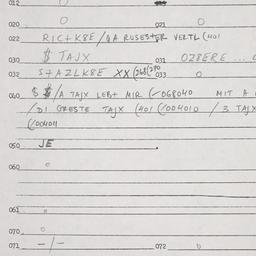 012
020 0 021 0
022 RICTK8E / VERTL (401
030 $ TAJX 031 028ERE ...
032 STAZLK8E XX (268(290 033 0
040 $ $ / A TAJX LEBT MIR (-068040 MIT A
/ D1 GRESTE TAJX (401 (/004010 / 3 TAJX
(/004011
050 JE
060 0
061
070 0
071 -/- 072 0